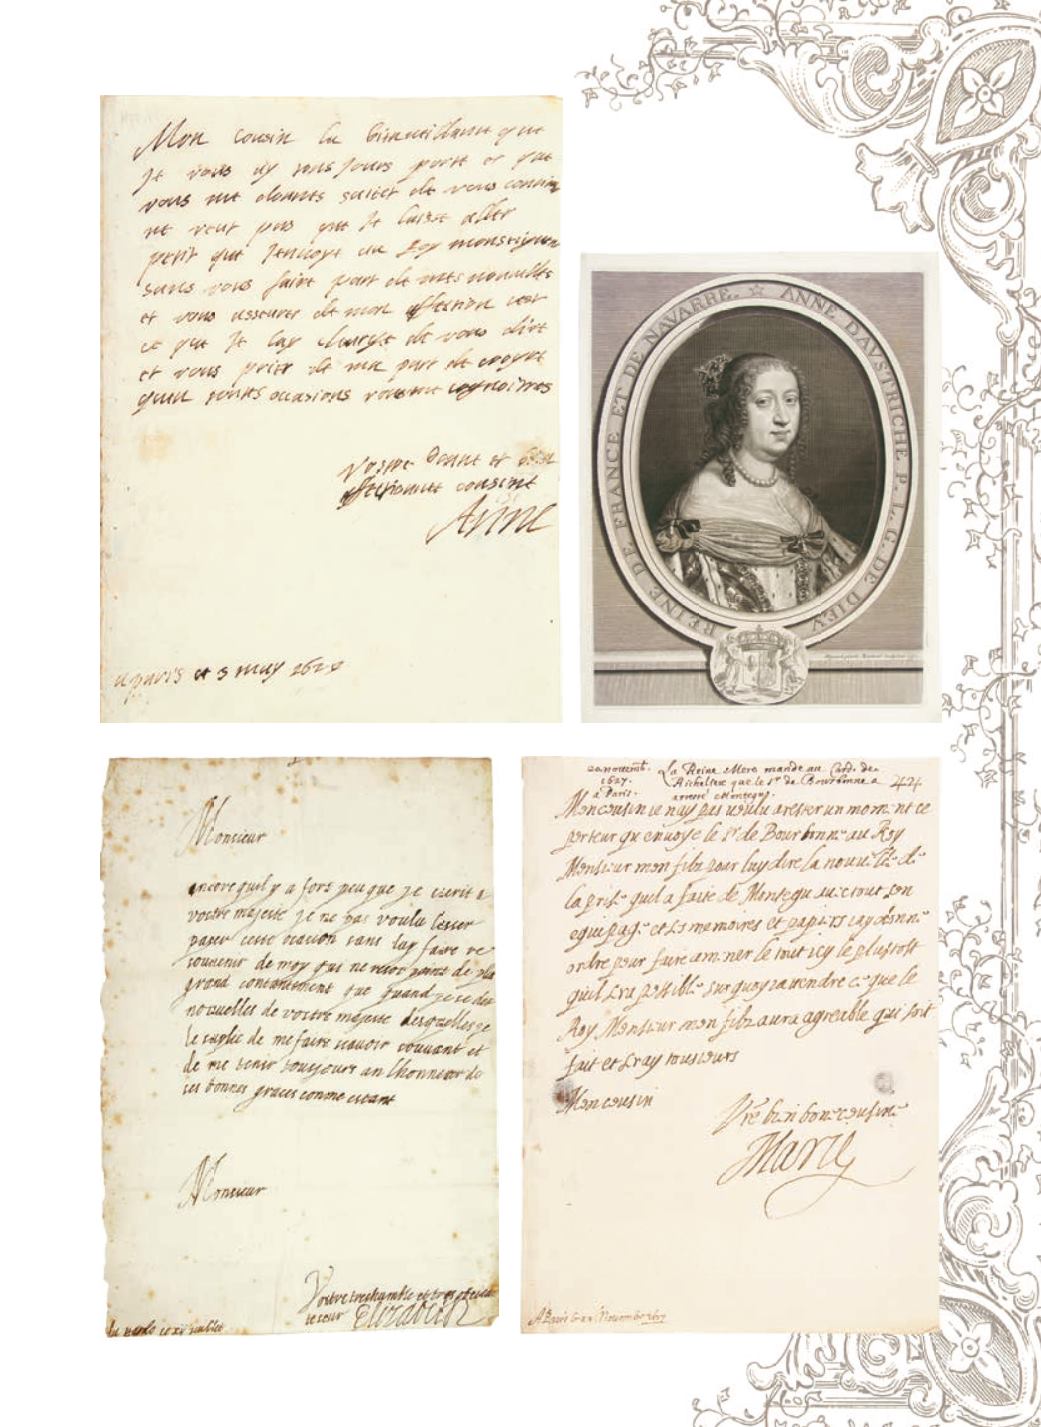 Mon cousin la bienueillance que
Je vous ay tousjours porté et que
vous me donnés suiect de vous continu
ne veut pas que Je laisse aller
petit que Jenuoye au Roy monseigneur
sans vous faire part de mes nouuelles
et vous asseurer de mon affection cest
ce que Je lay chargé de vous dire
et vous prier de ma part de croyre
quen toutes occasions vous me cognoitres
Vostre bonne et bien
affectionnee cousine
Anne
a paris ce 3 may
ANNE DAVSTRICHE P. L. G. DE DIEV REINE DE FRANCE ET DE NAVARRE. ☆
Monsieur
ancore quil y a fors peu que je escrit a
vostre majesté je ne pas voulu lesser
passer cette ocasion sans luy faire re
souuenir de moy qui ne recoy point de plus
grand contantement que quand je recoy des
nouuelles de vostre majesté desquelles je
le suplie de me faire scauoir souuant et
de me tenir tousjours an lhonneur de
ses bonnes graces comme estant
Monsieur
Vostre treshumble et tres obeissante
seur Elizabeth
20 nouemb. 1627. a Paris.
La Reine Mere mande au Card. de
Richelieu que le Sr de Bourbonne a
arresté Montegu.
424
Mon cousin ie nay pas voulu arester un moment ce
porteur qu envoye le Sr de Bourbonne au Roy
Monsieur mon filz pour luy dire la nouuelle de
la prise quil a faite de Montegu auec tout son
equipage et ses memoires et papiers iay donne
ordre pour faire amener le tout icy le plustost
quil sera possible sur quoy iattendre ce que le
Roy Monsieur mon filz aura agreable qui soit
fait et seray tousiours
Mon cousin
Vre bien bonne cousine
Marie
A Paris le Nouembre 1627